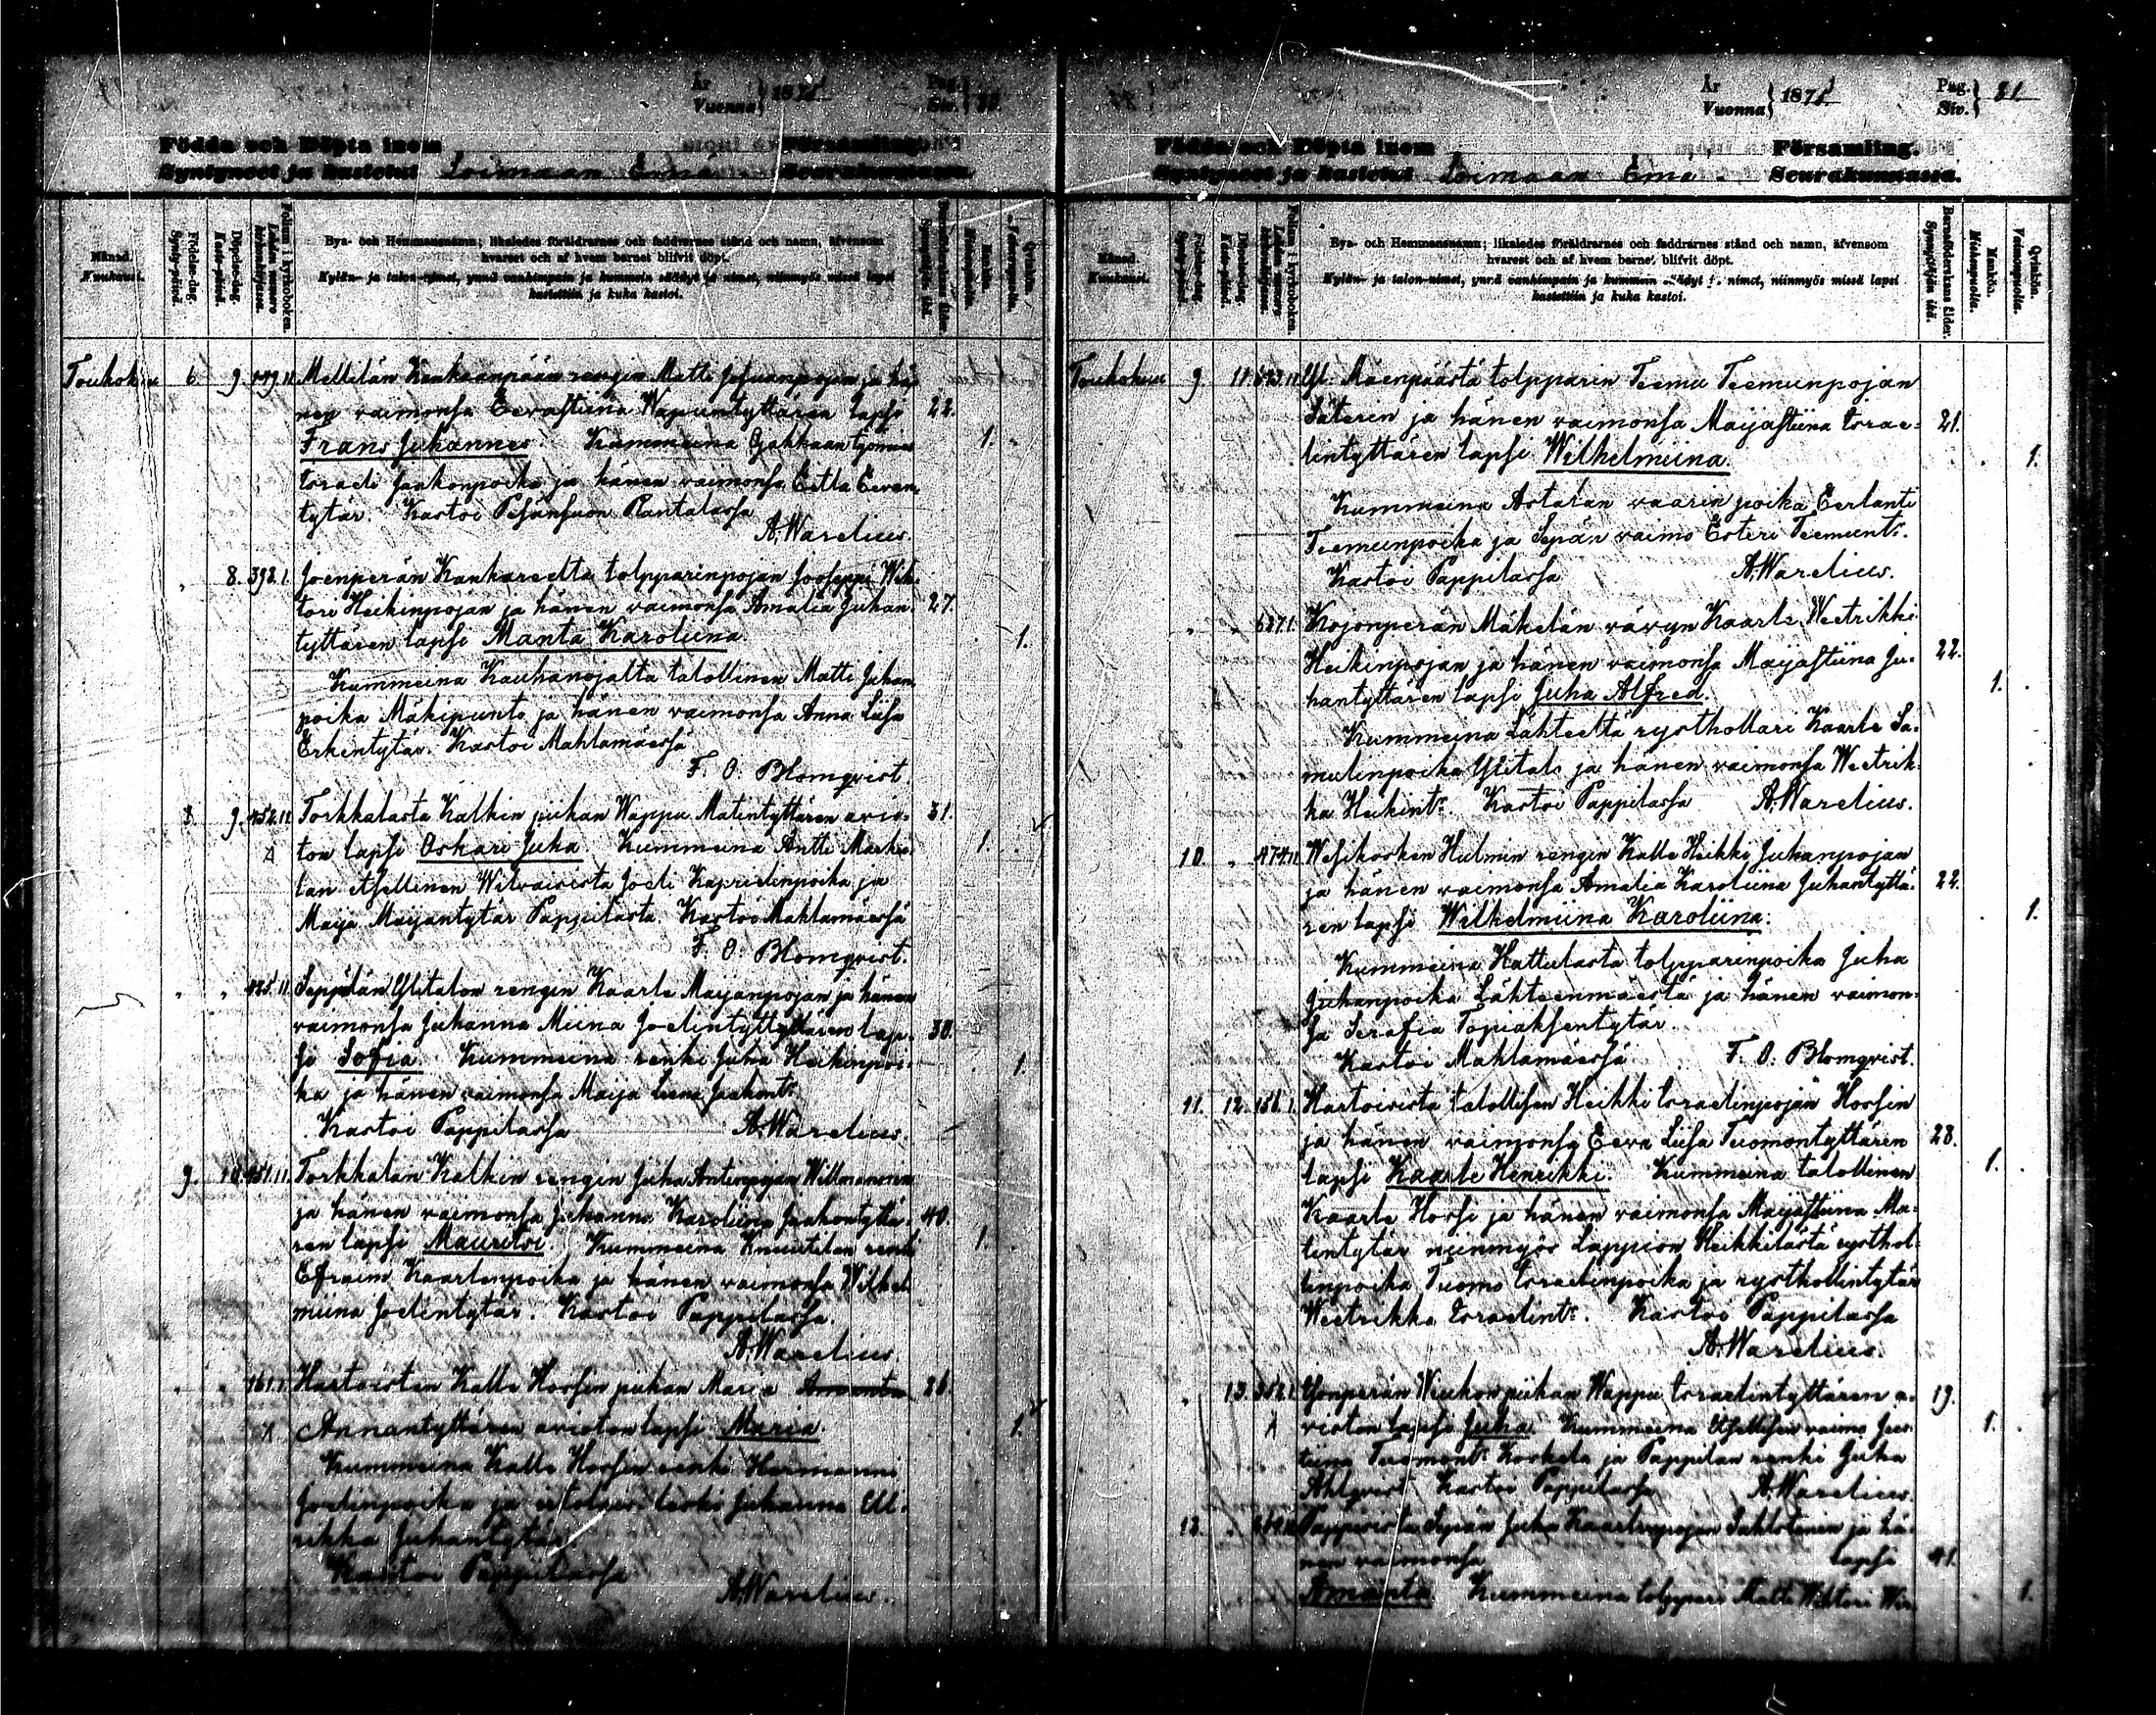 År
Vuonna } 1875
Pag.
Siv. }
Födda och Döpta inom Församling.
Syntyneet ja kastetut Loimaan Emä Seurakunnassa.
Månad.
Kuukausi.
Födelse-dag.
Synty-päivä.
Döpelse-dag.
Kaste-päivä.
Folium i kyrkoboken.
Lehden numero kirkonkirjassa.
Bya- och Hemmansnamn; likaledes föräldrarnes och faddrarnes stånd och namn, äfvensom
hvarest och af hvem barnet blifvit döpt.
Kylän- ja talon-nimet, ynnä vanhimpain ja kummein säädyt ja nimet, niinmyös missä lapsi
kastettiin ja kuka kastoi.
Barnaföderskans ålder.
Synnyttäjän ikä.
Mankön.
Miehenpuolia.
Qvinkön.
Vaimonpuolia.
Toukokuu 6. 9. Mellilän Kenkaanpään rengin Matti Juhanpojan ja hä-
nen vaimonsa Eevastiina Wapuntyttären lapsi 22.
Frans Juhannes. Kummeina 1.
Israeli Jaakonpoika ja hänen vaimonsa Eetla Eevan
tytär. Kastoi Pesänsuon Rantalassa
A. Warelius.
" 8. 392.1. Joenperän Kankareelta tolpparinpojan Jooseppi Wih-
tori Heikinpojan ja hänen vaimonsa Amalia Juhan- 27.
tyttären lapsi Manta Karoliina. 1.
Kummeina Kauhanojalta talollinen Matti Juhan
poika Mäkipunto ja hänen vaimonsa Anna Liisa
Erkintytär. Kastoi Mahlamäessä
F. O. Blomqvist.
8. 9. 452.11. Torkkalasta Kalkin piikan Wappu Matintyttären avio- 31.
ton lapsi Oskari Juha. Kummeina Antti Marku- 1.
lan itsellinen Joeli Kaprielinpoika ja
Maija Maijantytär Pappilasta. Kastoi Mahlamäessä
F. O. Blomqvist.
" " 425.11. Seppälän Ylitalon rengin Kaarle Maijanpojan ja hänen
vaimonsa Juhanna Miina Joelintyttären lap- 30.
si Sofia. Kummeina renki Juha Heikinpoi- 1.
ka ja hänen vaimonsa Maija Leena Jaakontr.
Kastoi Pappilassa A. Warelius.
9. 10. 451.11. Torkkalan Kalkin rengin Juha Antinpojan Willmannin
ja hänen vaimonsa Juhanna Karoliina Jaakontyttä- 40.
ren lapsi Mauritsi. Kummeina Knuutilan renki 1.
Efraim Kaarlenpoika ja hänen vaimonsa Wilhel
miina Joelintytär. Kastoi Pappilassa.
A. Warelius.
" " 161.1. Hartoisten Kalle Hossin piikan Maria 26.
Annantyttären avioton lapsi Maria. 1.
Kummeina Kalle Hossin renki Hermanni
Joelinpoika ja itsellais leski Juhanna Ul-
rikka Juhantytär.
Kastoi Pappilassa
A. Warelius.
År
Vuonna } 1875
Pag.
Siv. } 81.
Födda och Döpta inom Församling.
Syntyneet ja kastetut Loimaan Emä. Seurakunnassa.
Månad.
Kuukausi.
Födelse-dag.
Synty-päivä.
Döpelse-dag.
Kaste-päivä.
Folium i kyrkoboken.
Lehden numero kirkonkirjassa.
Bya- och Hemmansnamn; likaledes föräldrarnes och faddrarnes stånd och namn, äfvensom
hvarest och af hvem barnet blifvit döpt.
Kylän- ja talon-nimet, ynnä vanhimpain ja kummein säädyt ja nimet, niinmyös missä lapsi
kastettiin ja kuka kastoi.
Barnaföderskans ålder.
Synnyttäjän ikä.
Mankön.
Miehenpuolia.
Qvinkön.
Vaimonpuolia.
Toukokuu 9. 11. Mäenpäästä tolpparin Teemu Teemunpojan
Säterin ja hänen vaimonsa Maijastiina Israe- 21.
lintyttären lapsi Wilhelmiina. 1.
Kummeina Astalan vaarin poika Eerlanti
Teemunpoika ja Sepän vaimo Esteri Teemuntr.
Kastoi Pappilassa A. Warelius.
" " 627.1. Kojonperän Mäkelän vävyn Kaarle Weetrikki
Heikinpojan ja hänen vaimonsa Maijastiina Ju- 22.
hantyttären lapsi Juha Alfred. 1.
Kummeina Lähteeltä rysthollari Kaarle Sa-
mulinpoika Ylitalo ja hänen vaimonsa Weetrik-
ka Heikintr. Kastoi Pappilassa A. Warelius.
10. " 474.11. Wesikosken Hulmin rengin Kalle Heikki Juhanpojan
ja hänen vaimonsa Amalia Karoliina Juhantyttä- 22.
ren lapsi Wilhelmiina Karoliina. 1.
Kummeina Hattulasta tolpparinpoika Juha
Juhanpoika Lähteenmäestä ja hänen vaimon-
sa Serafia Topiaksentytär.
Kastoi Mahlamäessä F. O. Blomqvist.
11. 12. 158.1. Hartoisista talollisen Heikki Israelinpojan Hossin
ja hänen vaimonsa Eeva Liisa Tuomontyttären 28.
lapsi Kaarle Henrikki. Kummeina talollinen 1.
Kaarle Hossi ja hänen vaimonsa Maijastiina Ma-
tintytär niinmyös Lappion Heikkilästä rysthol-
linpoika Tuomo Israelinpoika ja rysthollintytär
Weetrikka Israelintr. Kastoi Pappilassa
A. Warelius.
" 13. 352.1. Ylönperän piikan Wappu Israelintyttären a- 19.
vioton lapsi Juha. Kummeina itsellisen vaimo Jus- 1.
tiina Tuomontr. Koskela ja Pappilan renki Juha
Ahlqvist. Kastoi Pappilassa A. Warelius.
12. " Sepän Juha Kaarlenpojan ja hä-
nen vaimonsa lapsi 41.
Amanta. Kummeina tolppari Matti Wihtori 1.